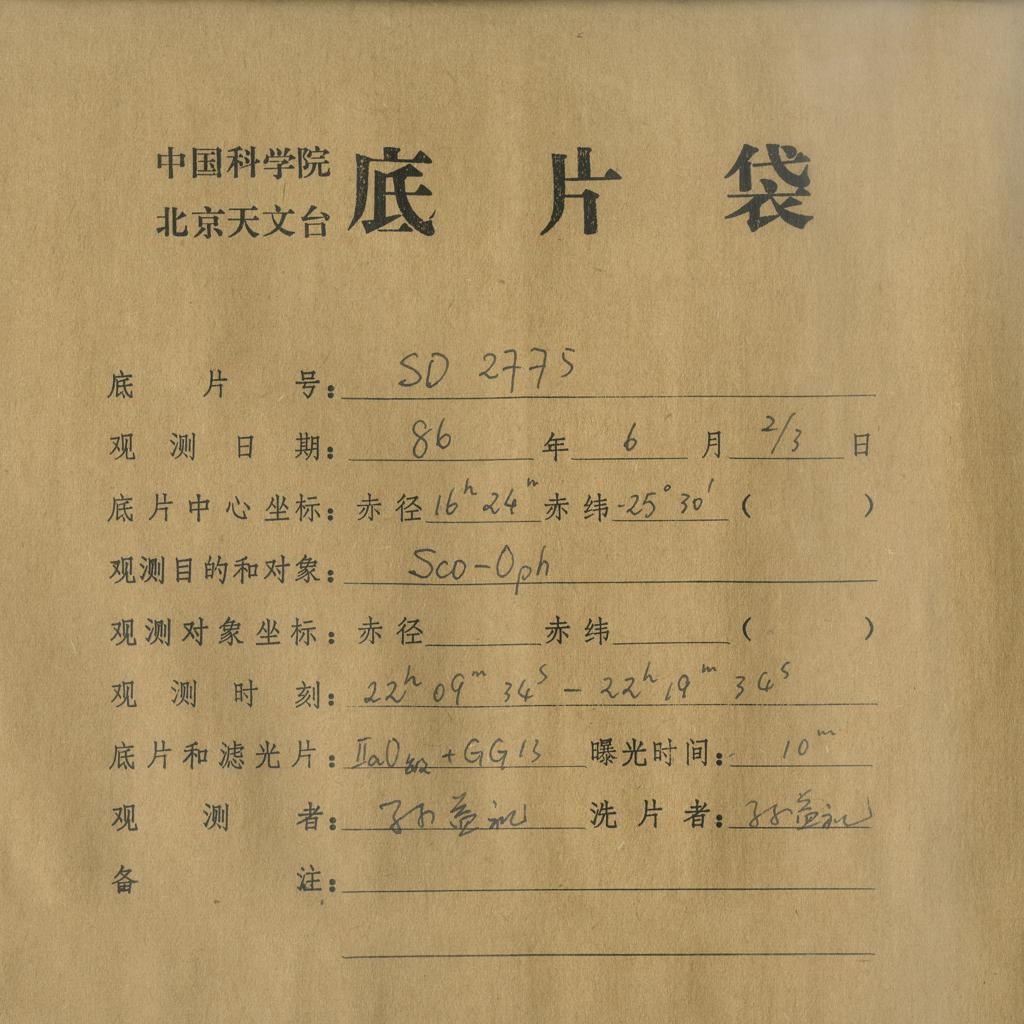 中国科学院
北京天文台
底片袋
底片号: SO 2775
观测日期: 86年 6月 2/3日
底片中心坐标: 赤径 16h 24m 赤纬 -25° 30' ( )
观测目的和对象: Sco-Oph
观测对象坐标: 赤径 赤纬 ( )
观测时刻: 22h 09m 34s - 22h 19m 34s
底片和滤光片: IIaO敏 + GG13 曝光时间: 10m
观测者: 孙益礼 洗片者: 孙益礼
备注: